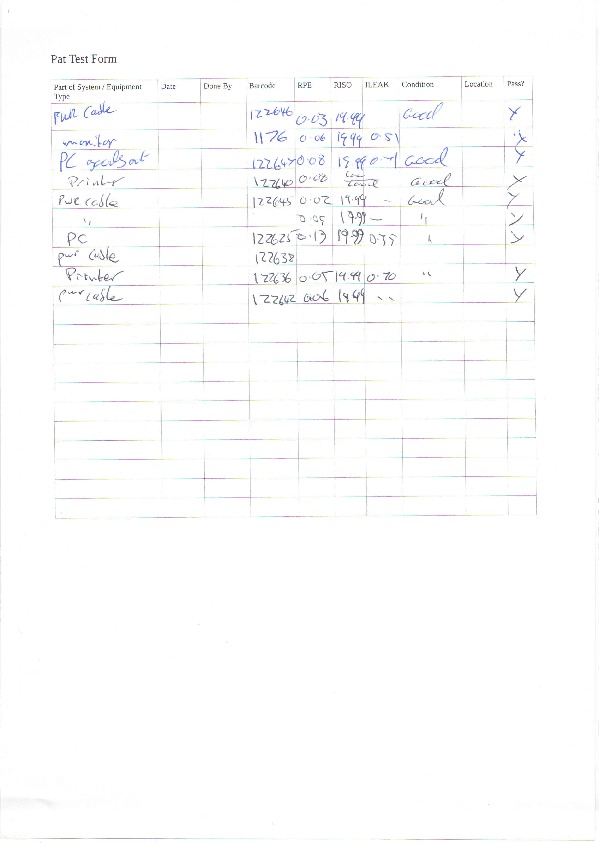 Pat Test Form
Part of System / Equipment Type Date Done By Barcode RPE RISO ILEAK Condition Location Pass?
pwr Cable 122646 0.03 19.99 Good Y
monitor 1176 0.06 19.99 0.51 Y
PC 122647 0.08 19.99 Good Y
Printer 122640 0.08 Good Y
Pwr cable 122645 0.02 19.99 - Good Y
" 0.05 19.99 - " Y
PC 122625 0.13 19.99 " Y
pwr cable 122638
Printer 122636 0.05 19.99 0.70 " Y
pwr cable 122642 0.06 19.99 -- Y